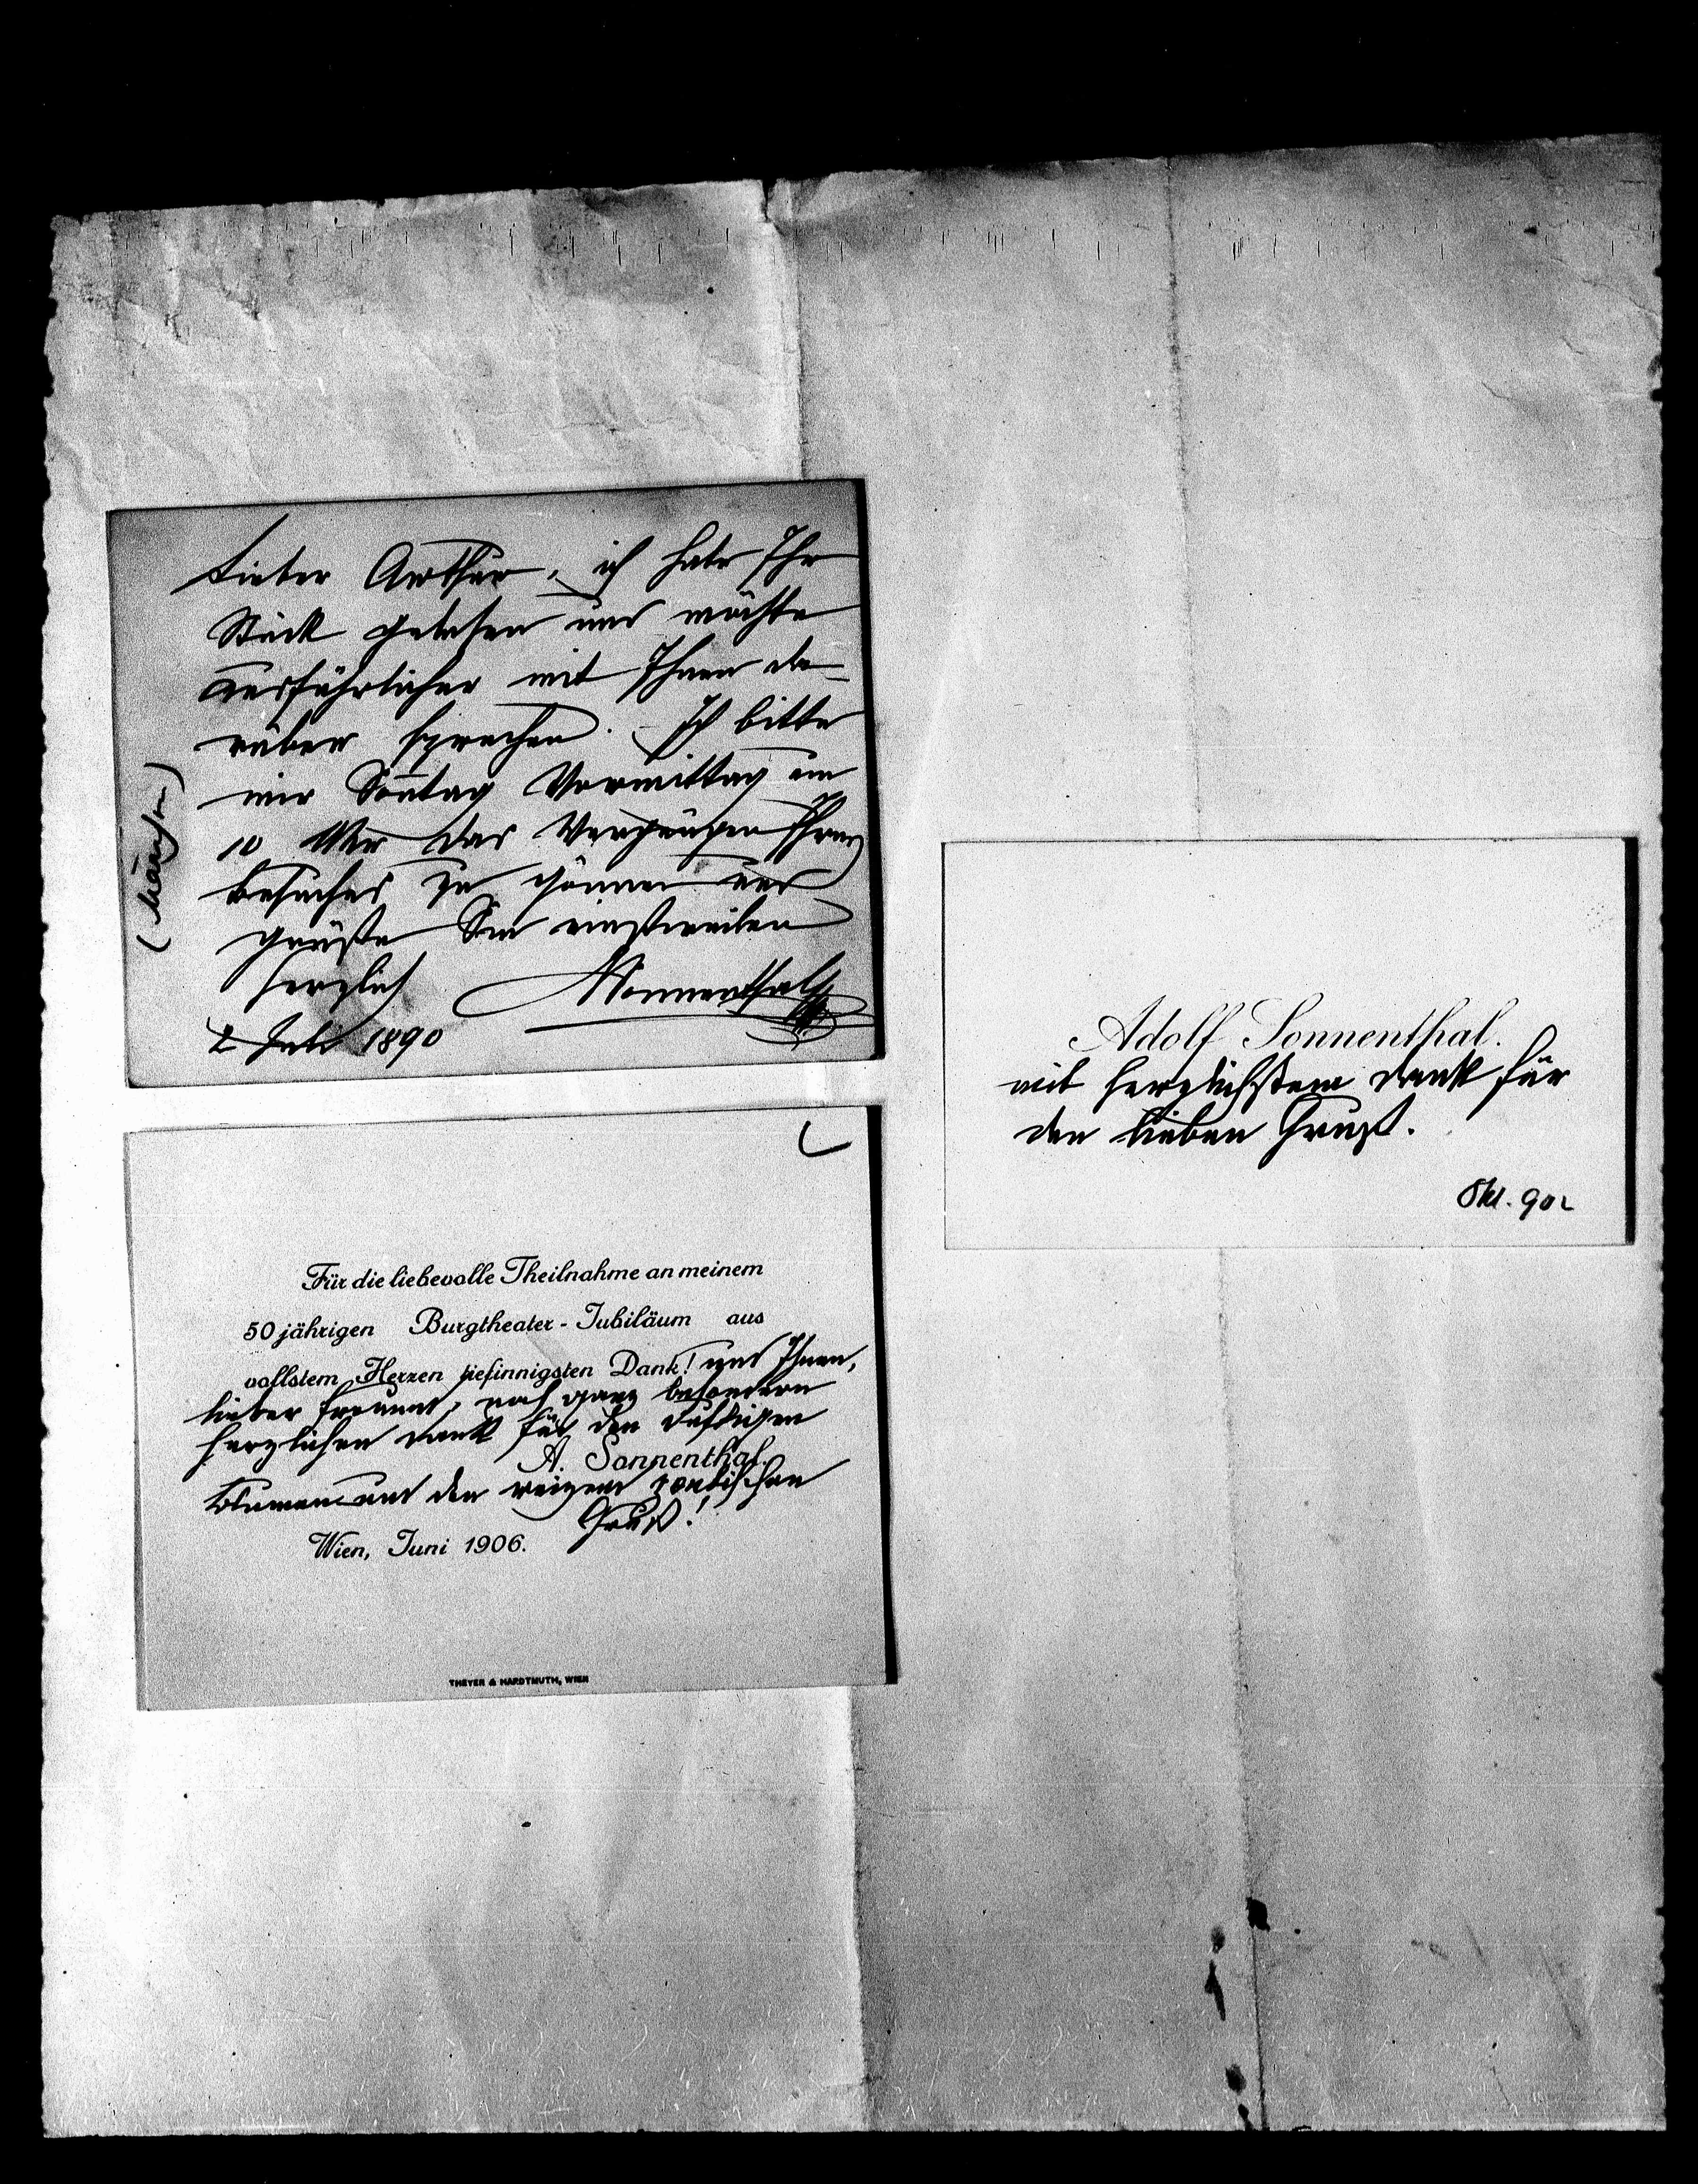 Lieber Arthur, ich habe Ihr
Stück gelesen und möchte
ausführlicher mit Ihnen da-
rüber sprechen. Ich bitte
mir Sonntag Vormittag um
10 Uhr das Vergnügen Ihres
Besuches zu gönnen und
grüße Sie einstweilen
herzlich Sonnenthal
2 Juli 1890
Adolf Sonnenthal.
mit herzlichstem Dank für
den lieben Gruß.
Okt. 902
Für die liebevolle Theilnahme an meinem
50 jährigen Burgtheater-Jubiläum aus
vollstem Herzen tiefinnigsten Dank! und Ihnen,
lieber Freund, noch ganz besondern
herzlichen Dank für den duftigen
A. Sonnenthal.
Blumen und den reizend poetischen
Gruß!
Wien, Juni 1906.
THEYER & HARDTMUTH, WIEN